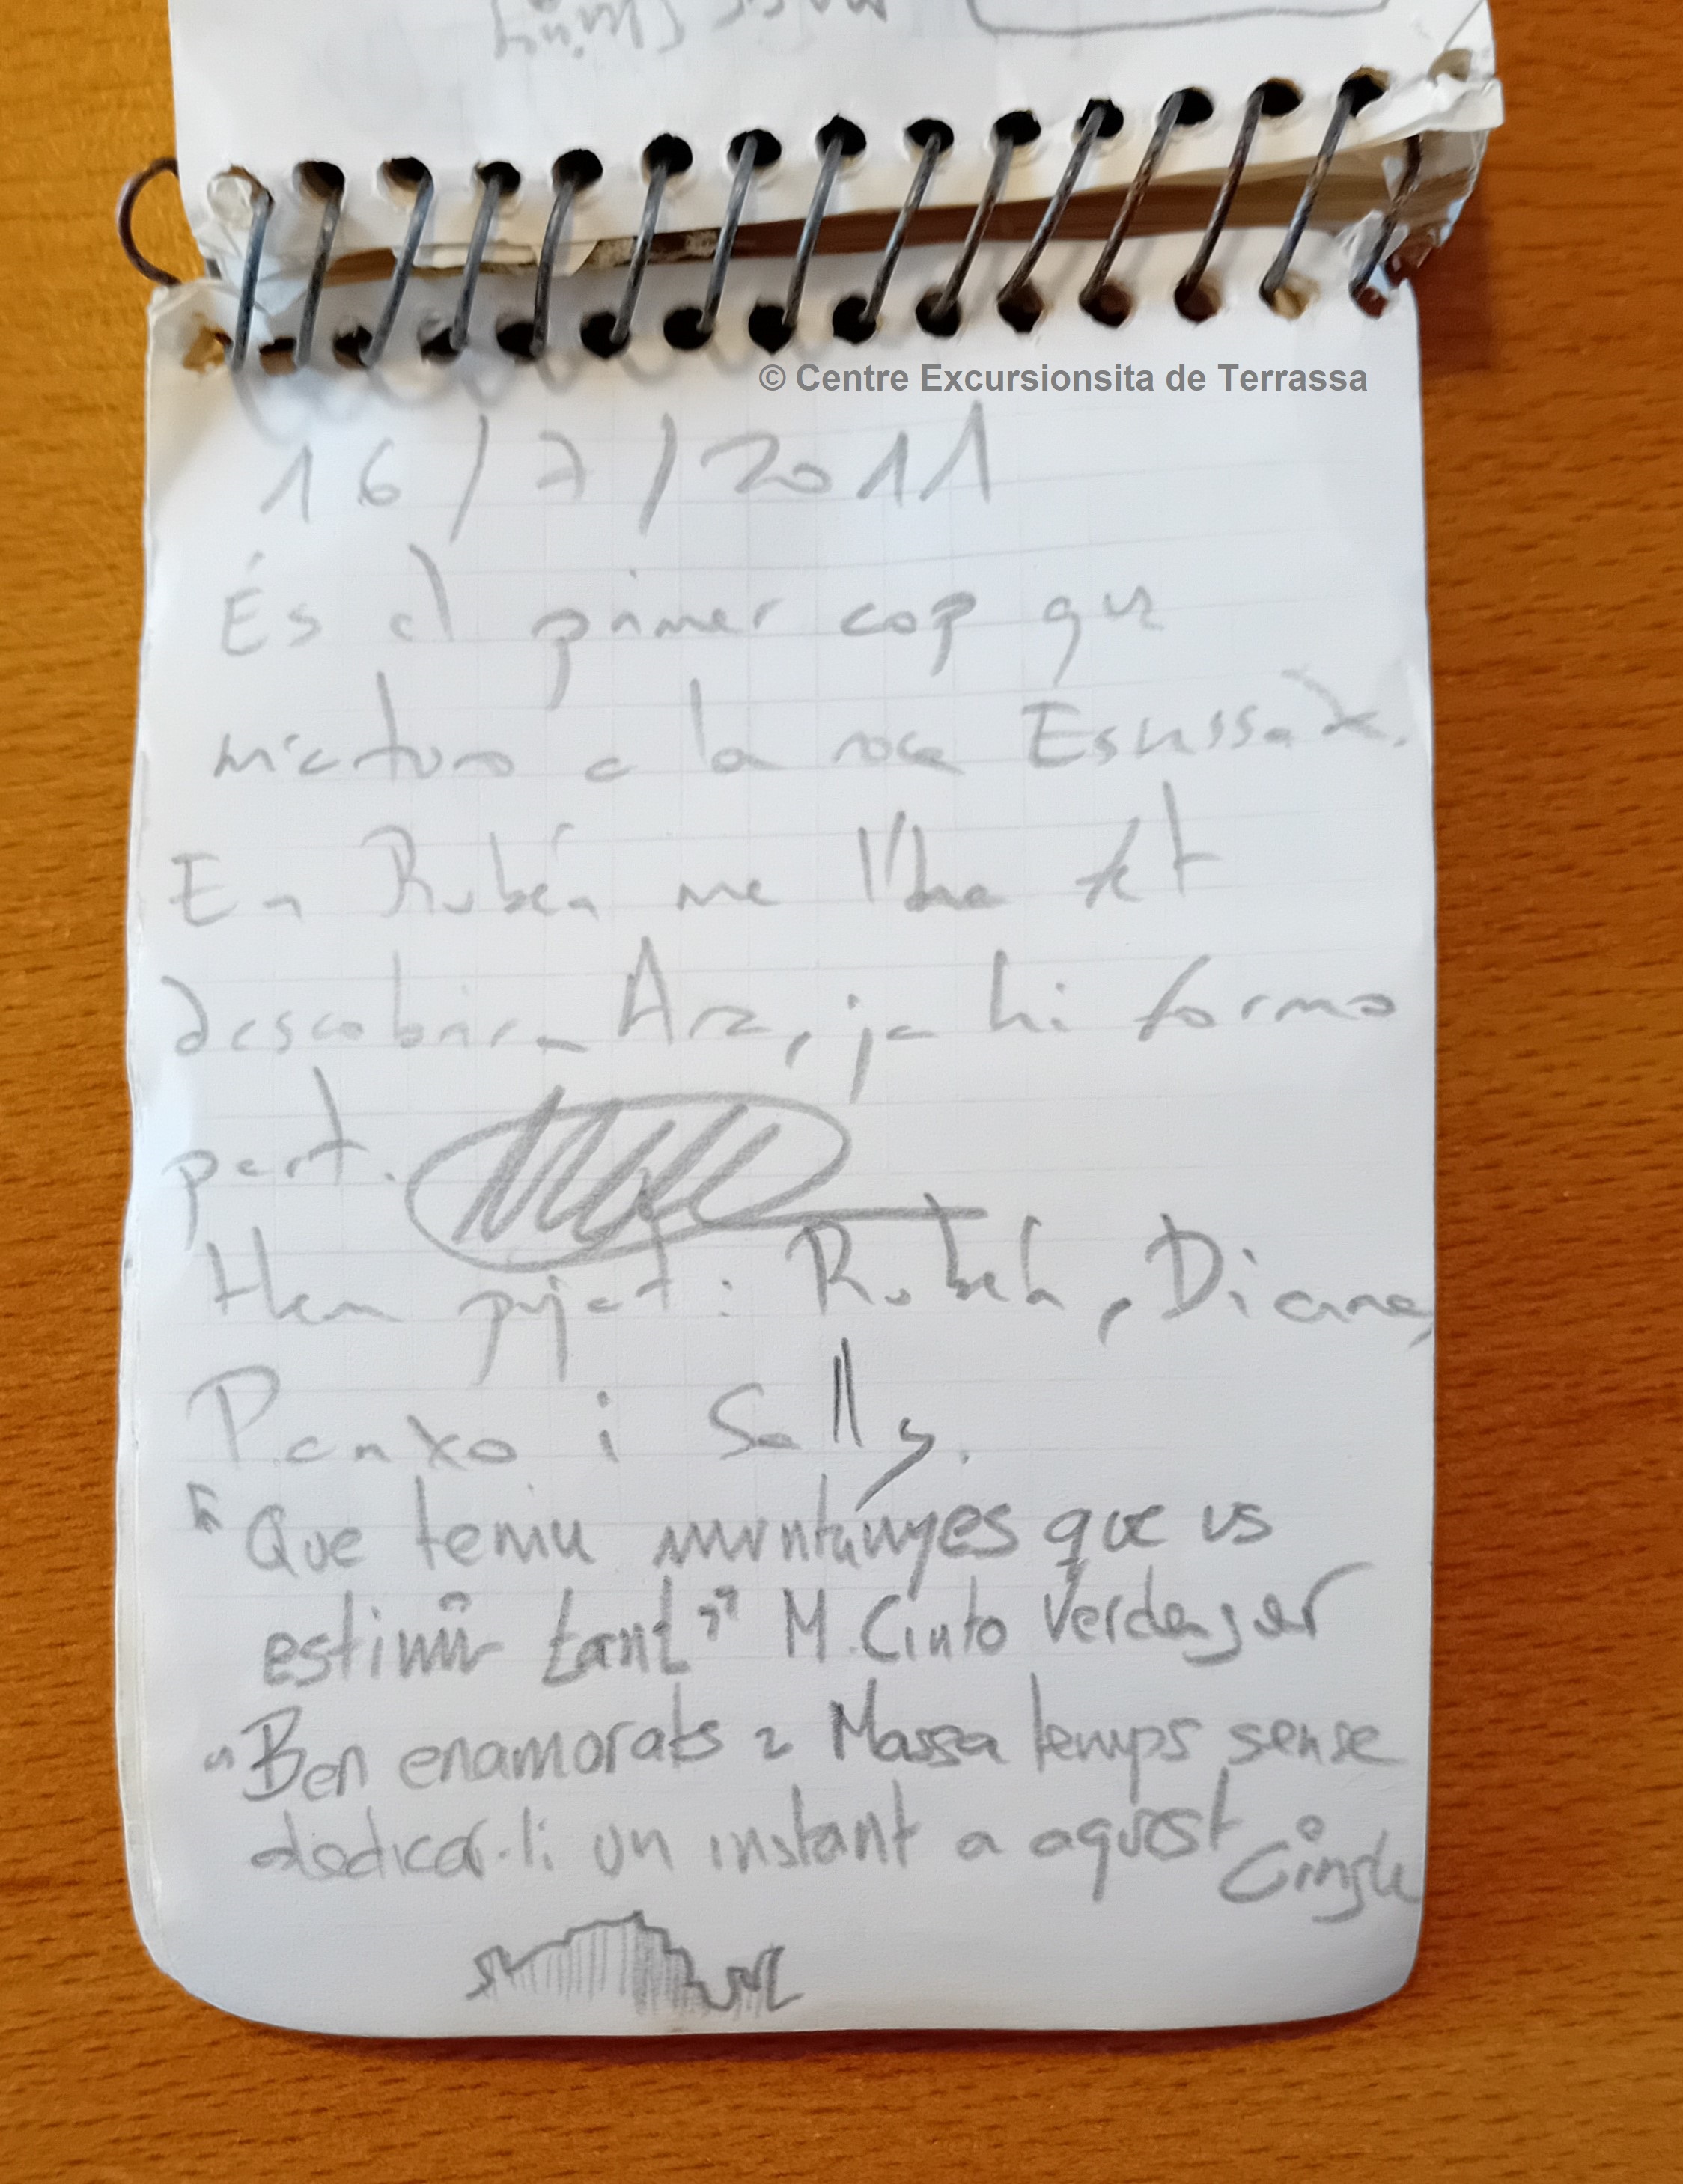 © Centre Excursionsita de Terrassa
16/7/2011
És el primer cop que
m'aturo a la roca Esussada.
En Rubén me l'ha fet
descobrir. Ara, ja hi formo
part.
Hem pujat: Rubén, Diana,
Panxo i Sally.
"Que teniu muntanyes que us
estimin tant" M. Cinto Verdaguer
"Ben enamorats Massa temps sense
dedicar-li un instant a aquest Cingle